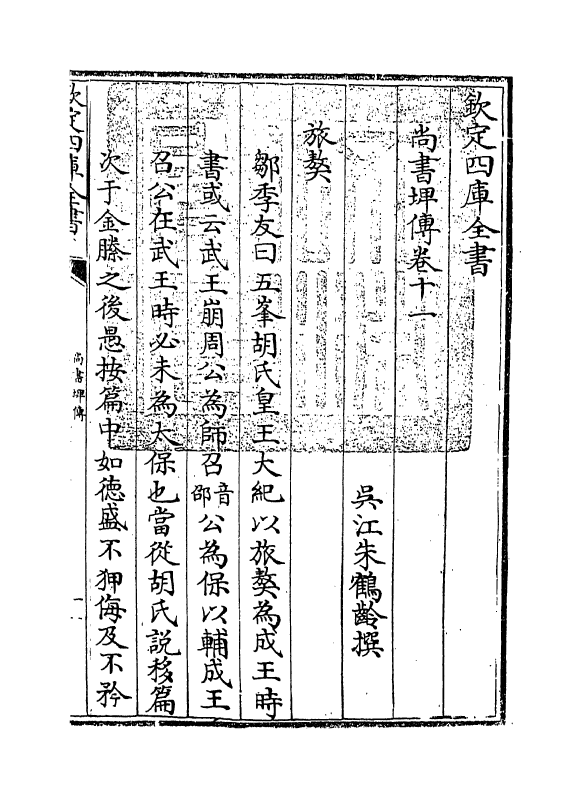 欽定四庫全書
尚書埤傳卷十一
吳江朱鶴齡撰
旅獒
鄒季友曰五峯胡氏皇王大紀以旅獒為成王時
書或云武王崩周公為師召音邵公為保以輔成王
召公在武王時必未為太保也當從胡氏説移篇
次于金縢之後愚按篇中如德盛不狎侮及不矜
欽定四庫全書
尚書埤傳
一